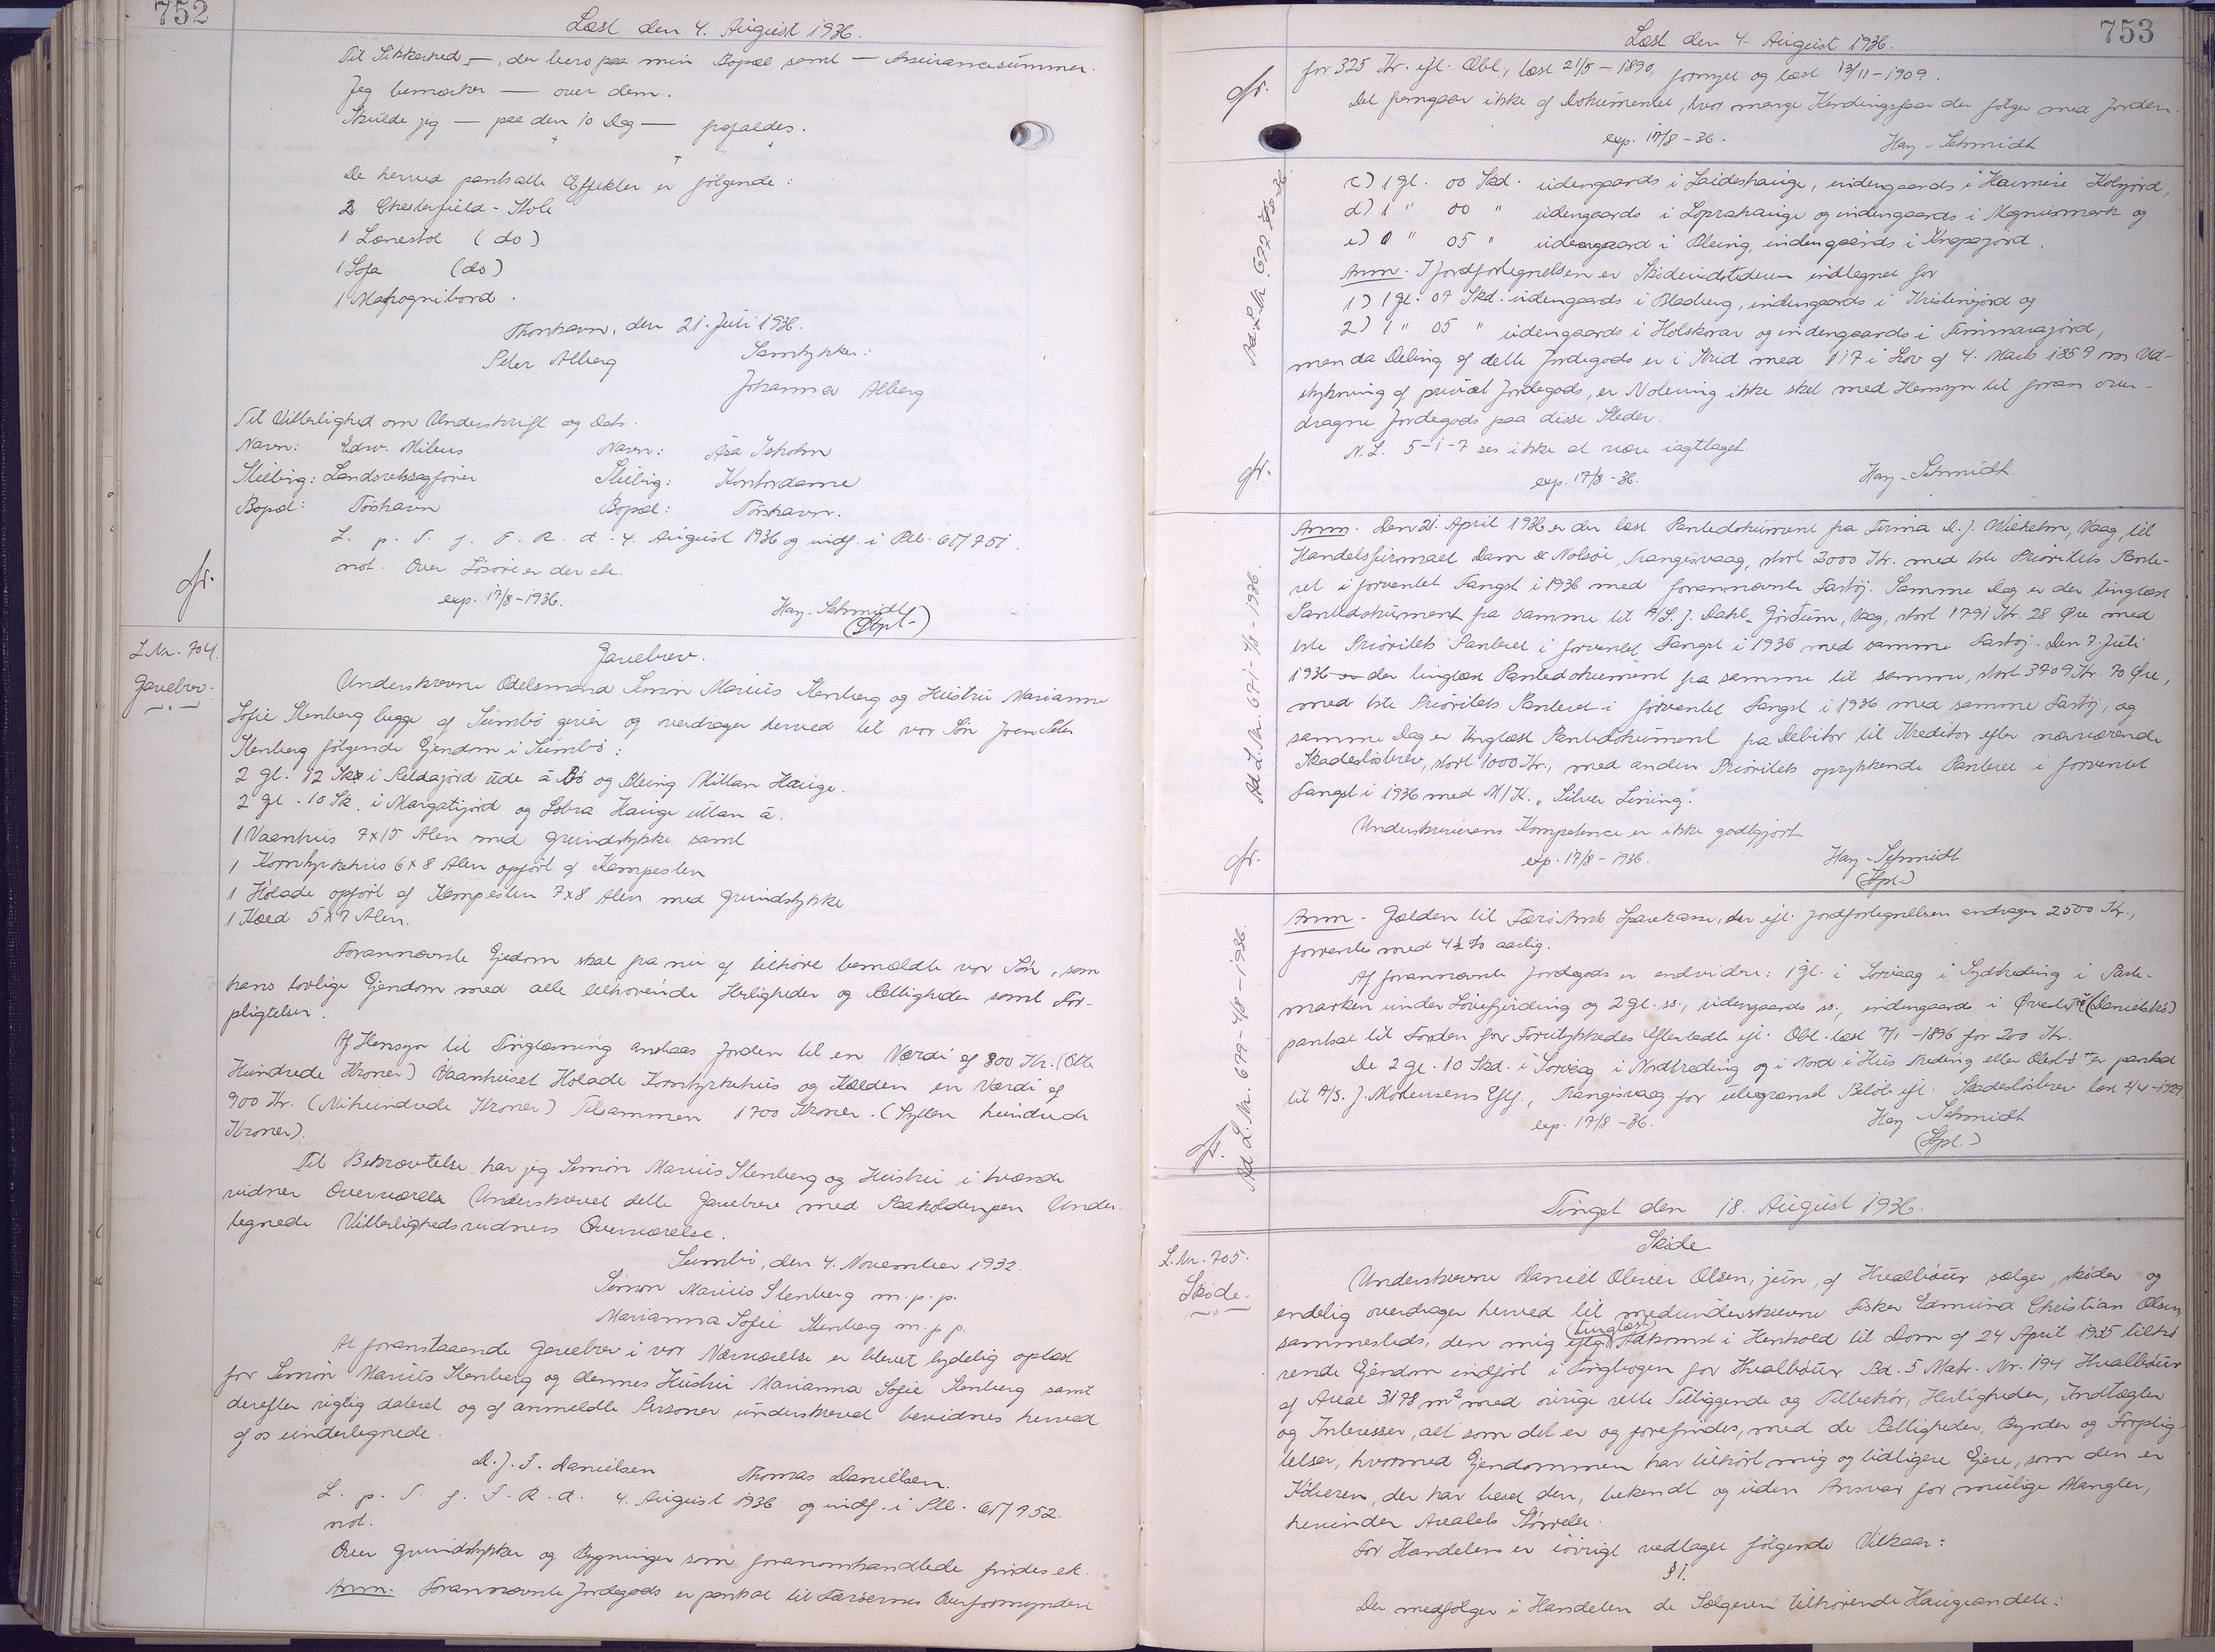 752
Læst den 4. August 1936.
Til Sikkerhed —, der bero paa min Bopæl samt — Assurancesummer.
Jeg bemærker — over dem.
Skulde jeg — paa den 10 Dag — frafaldes.
De herved pantsatte Effekter er følgende:
2 Chesterfield-Stole
1 Lænestol (do)
1 Sofa (do)
1 Mahognibord.
Thorshavn, den 21. Juli 1936.
Peter Alberg Samtykker:
Johanna Alberg
Til Vitterlighed om Underskrift og Dato.
Navn: Edw. Mitens Navn: Åsa Isholm
Stilling: Landsretssagfører Stilling: Kontordame
Bopæl: Tórshavn Bopæl: Tórshavn.
L. p. T. f. F. R. d. 4. August 1936 og indf. i Ptb. 617951.
not. Over Løsøre er der etc.
exp. 17/8-1936.
Hay-Schmidt
(Stpl-)
L Nr. 704.
Gavebrev.
Gavebrev.
Underskrevne Odelsmand Simin Marius Stenberg og Hustru Marianne
Sofie Stenberg begge af Sumbø giver og overdrager herved til vor Søn Joen Peter
Stenberg følgende Ejendom i Sumbø:
2 gl. 12 Sk i Seldajørd ude á Bø og Bleing Millan Hauge.
2 gl. 10 Sk. i Margatijord og Lobra Hauge uttan á.
1 Vaanhus 7x15 Alen med Grundstykke samt
1 Korntyrkehus 6x8 Alen opført af Kampesten
1 Hølade opført af Kampesten 7x8 Alen med Grundstykke
1 Kæld 5x7 Alen.
Forannævnte Ejedom skal fra nu af tilhøre bemældte vor Søn, som
hans lovlige Ejendom med alle tilhørende Herligheder og Rettigheder samt For-
pligtelser.
Af Hensyn til Tinglæsning anslaas Jorden til en Værdi af 800 Kr. (Otte
Hundrede Kroner) Vaanhuset Hølade Korntyrkehus og Kælden en Værdi af
900 Kr. (Nihundrede Kroner) Tilsammen 1700 Kroner. (Sytten hundrede
Kroner).
Til Bekræftelse har jeg Simon Marius Stenberg og Hustru i hvænde
vidner Overværelse Underskrevet dette Gavebrev med Paaholdenpen Under-
tegnede Vitterlighedsvidners Overværelse.
Sumbø, den 4. November 1932.
Simon Marius Stenberg m.p.p.
Marianna Sofie Stenberg m.p.p.
At foranstaaende Gavebrev i vor Nærværelse er blevet tydelig oplæst
for Simon Marius Stenberg og dennes Hustru Marianna Sofie Stenberg samt
derefter rigtig dateret og af anmeldte Personer underskrevet bevidnes herved
af os undertegnede.
D. J. T. Danielsen Thomas Danielsen.
L. p. T. f. F. R. d. 4. August 1936 og indf. i Ptb. 617952.
not.
Over Grundstykker og Bygninger som foranomhandlede findes ek.
Anm. Forannævnte Jordegods er pantsat til Færøernes Overformynderi
753
Læst den 4. August 1936.
for 325 Kr. efl. Obl., læst 21/5-1890, fornyet og læst 13/11-1909.
Det fremgaar ikke af Dokumentet, hvor mange Hendingsfaar der følger med Jorden.
exp. 17/8-36. Hay-Schmidt
Ad L. Nr. 677
c) 1 gl. 00 Skd. udengaards i Laideshauge, indengaards i Haimeri Kolsjord,
d) 1 " 00 " udengaards i Loprahauge og indengaards i Magnusmark og
e) 0 " 05 " udengaard i Bleing, indengaards i Knapajord.
Anm. I Jordfortegnelsen er Skødeudstederen indtegnet for
1) 1 gl. 07 Skd. udengaards i Bladberg, indengaards i Kristinjord og
2) 1 " 05 " udengaards i Holskorar og indengaards i Timmarajord,
men da Deling af dette Jordegods er i Strid med § 17 i Lov af 4. Marts 1857 om Ud-
stykning af privat Jordegods, er Notering ikke sket med Hensyn til foran over-
dragne Jordegods paa disse Steder.
N. L. 5-1-7 ses ikke at være iagttaget.
exp. 17/8-36. Hay-Schmidt.
Ad L. Nr. 671-4/8-1936.
Anm. Den 21. April 1936 er der læst Pantedokument fra Firma D. J. Wilhelm, Vaag, til
Handelsfirmaet Dam & Nolsøe, Trangisvaag, stort 3000 Kr. med 1ste Prioritets Pante-
ret i forventet Fangst i 1936 med forannævnte Fartøj. Samme Dag er der tinglæst
Pantedokument fra samme til A/S. J. Dahl-Gørdum, Vaag, stort 1791 Kr. 28 Øre med
1ste Prioritets Panteret i forventet Fangst i 1936 med samme Fartøj. Den 7. Juli
1936 er der tinglæst Pantedokument fra samme til samme, stort 3709 Kr. 70 Øre,
med 1ste Prioritets Panteret i forventet Fangst i 1936 med samme Fartøj, og
samme Dag er tinglæst Pantedokument fra Debitor til Kreditor efter nærværende
Skadesløsbrev, stort 1000 Kr., med anden Prioritets oprykkende Panteret i forventet
Fangst i 1936 med M/K. "Silver Lining".
Underskriverens Kompetence er ikke godtgjort.
exp. 17/8-1936. Hay-Schmidt
(Stpl-)
Ad L. Nr. 679-4/8-1936.
Anm. Gælden til Færø Amts Sparekasse, der efl. Jordfortegnelsen andrager 2500 Kr.,
forrentes med 4½ % aarlig.
Af forannævnte Jordegods er endvidere: 1 gl. i Sorvaag i Sydtreding i Parte-
marken under Lovefjerding og 2 gl. ss., udengaards ss., indengaard i (Danielsbø)
pantsat til Forden for Forulykkedes Efterladte efl. Obl. læst 7/1-1896 for 200 Kr.
De 2 gl. 10 Skd. i Sorvaag i Nordtreding og i Nord i Hus Treding eller er pantsat
til A/S. J. Mortensens Eftf., Trangisvaag for ubegrænset Beløb efl. Skadesløsbrev læst 4/4-1929
exp. 17/8-36. Hay-Schmidt
(Stpl.)
Tinget den 18. August 1936.
L. Nr. 705.
Skøde.
Skøde
Underskrevne Daniel Olivier Olsen, jun, af Hvalbøur sælger, skøder og
endelig overdrager herved til medunderskrevne Fisker Edmund Christian Olsen,
sammesteds, den mig eflg. (tinglæst) Adkomst i Henhold til Dom af 24 April 1935 tilhø
rende Ejendom indført i Tingbogen for Hvalbøur Bd. 5 Matr. Nr. 194 Hvalbøur
af Areal 3178 m² med øvrige rette Tilliggende og Tilbehør, Herligheder, Indtægter
og Interesser, alt som det er og forefindes, med de Rettigheder, Byrder og Forplig-
telser, hvormed Ejendommen har tilhørt mig og tidligere Ejere, som den er
Køberen, der har beset den, bekendt og uden Ansvar for mulige Mangler,
herunder Arealets Størrelse.
For Handelen er iøvrigt vedtaget følgende Vilkaar:
§ 1.
Der medfølger i Handelen de Sælgeren tilhørende Haugeandele: